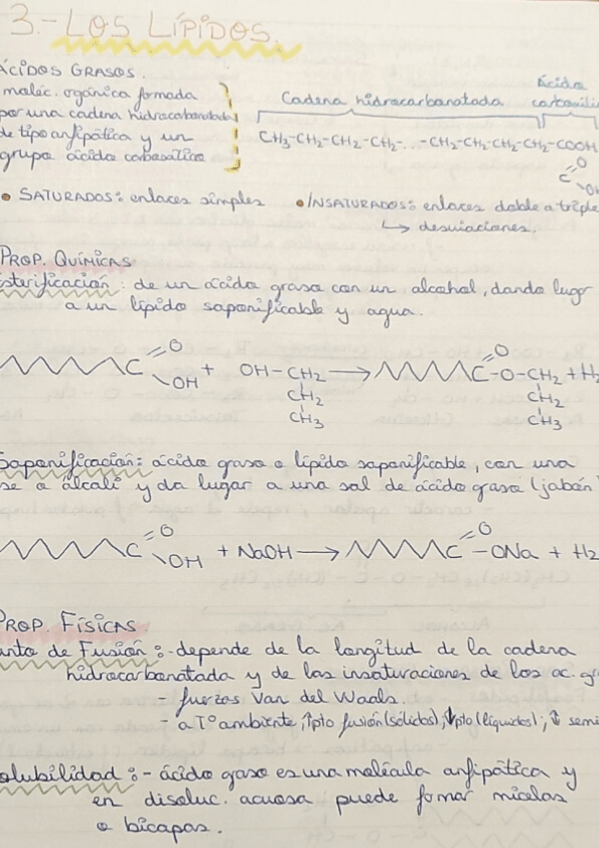 3.- LOS LÍPIDOS.
ÁCIDOS GRASOS.
molec. orgánica formada
por una cadena hidrocarbonatada
de tipo anfipática y un
grupo ácido carboxílico
Cadena hidrocarbonatada
Ácido
carboxíli
CH3-CH2-CH2-CH2-...-CH2-CH2-CH2-CH2-COOH
C O OH
• SATURADOS: enlaces simples • INSATURADOS: enlaces doble o triple
↳ desviaciones.
PROP. QUÍMICAS
sterificación: de un ácido graso con un alcohol, dando lugar
a un lípido saponificable y agua.
C=O OH + OH-CH2 → C=O-O-CH2 + H2
CH2 CH2
CH3 CH3
Saponificación: ácido graso o lípido saponificable, con una
se o álcali y da lugar a una sal de ácido graso (jabón)
C=O OH + NaOH → C=O -ONa + H2
PROP. FÍSICAS
unto de Fusión: - depende de la longitud de la cadena
hidrocarbonatada y de las insaturaciones de los ac. gr
- fuerzas Van del Waals.
- a Tº ambiente, ↑pto fusión (sólidos), ↓pto (líquidos), ↕ semi
olubilidad: - ácido graso es una molécula anfipática y
en disoluc. acuosa puede formar micelas
o bicapas.